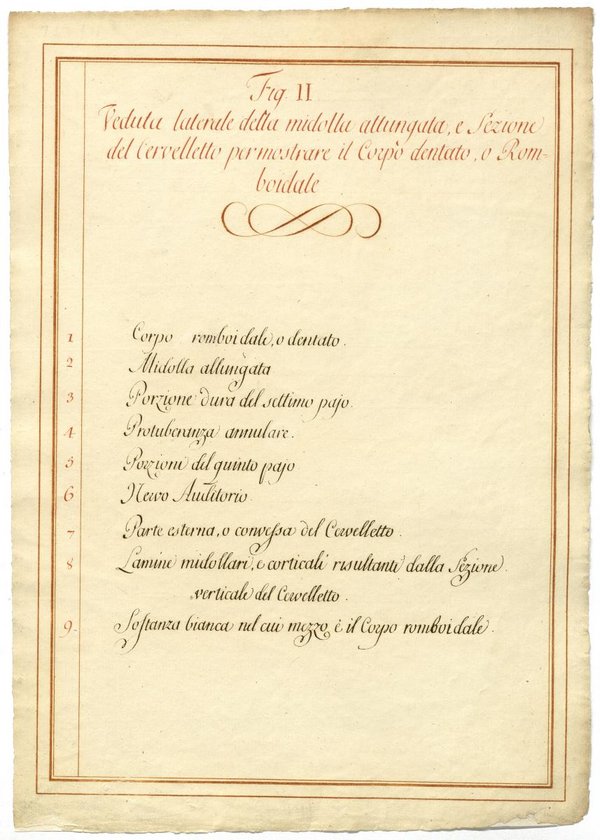 Fig. II
Veduta laterale della midolla allungata, e Sezione
del Cervelletto per mostrare il Corpo dentato, o Rom-
boidale
1 Corpo romboidale, o dentato.
2 Midolla allungata
3 Porzione dura del settimo pajo.
4 Protuberanza annulare.
5 Porzioni del quinto pajo
6 Nervo Auditorio.
7 Parte esterna, o convessa del Cervelletto.
8 Lamine midollari, e corticali risultante dalla Sezione
verticale del Cervelletto.
9. Sostanza bianca nel cui mezzo è il Corpo romboidale.